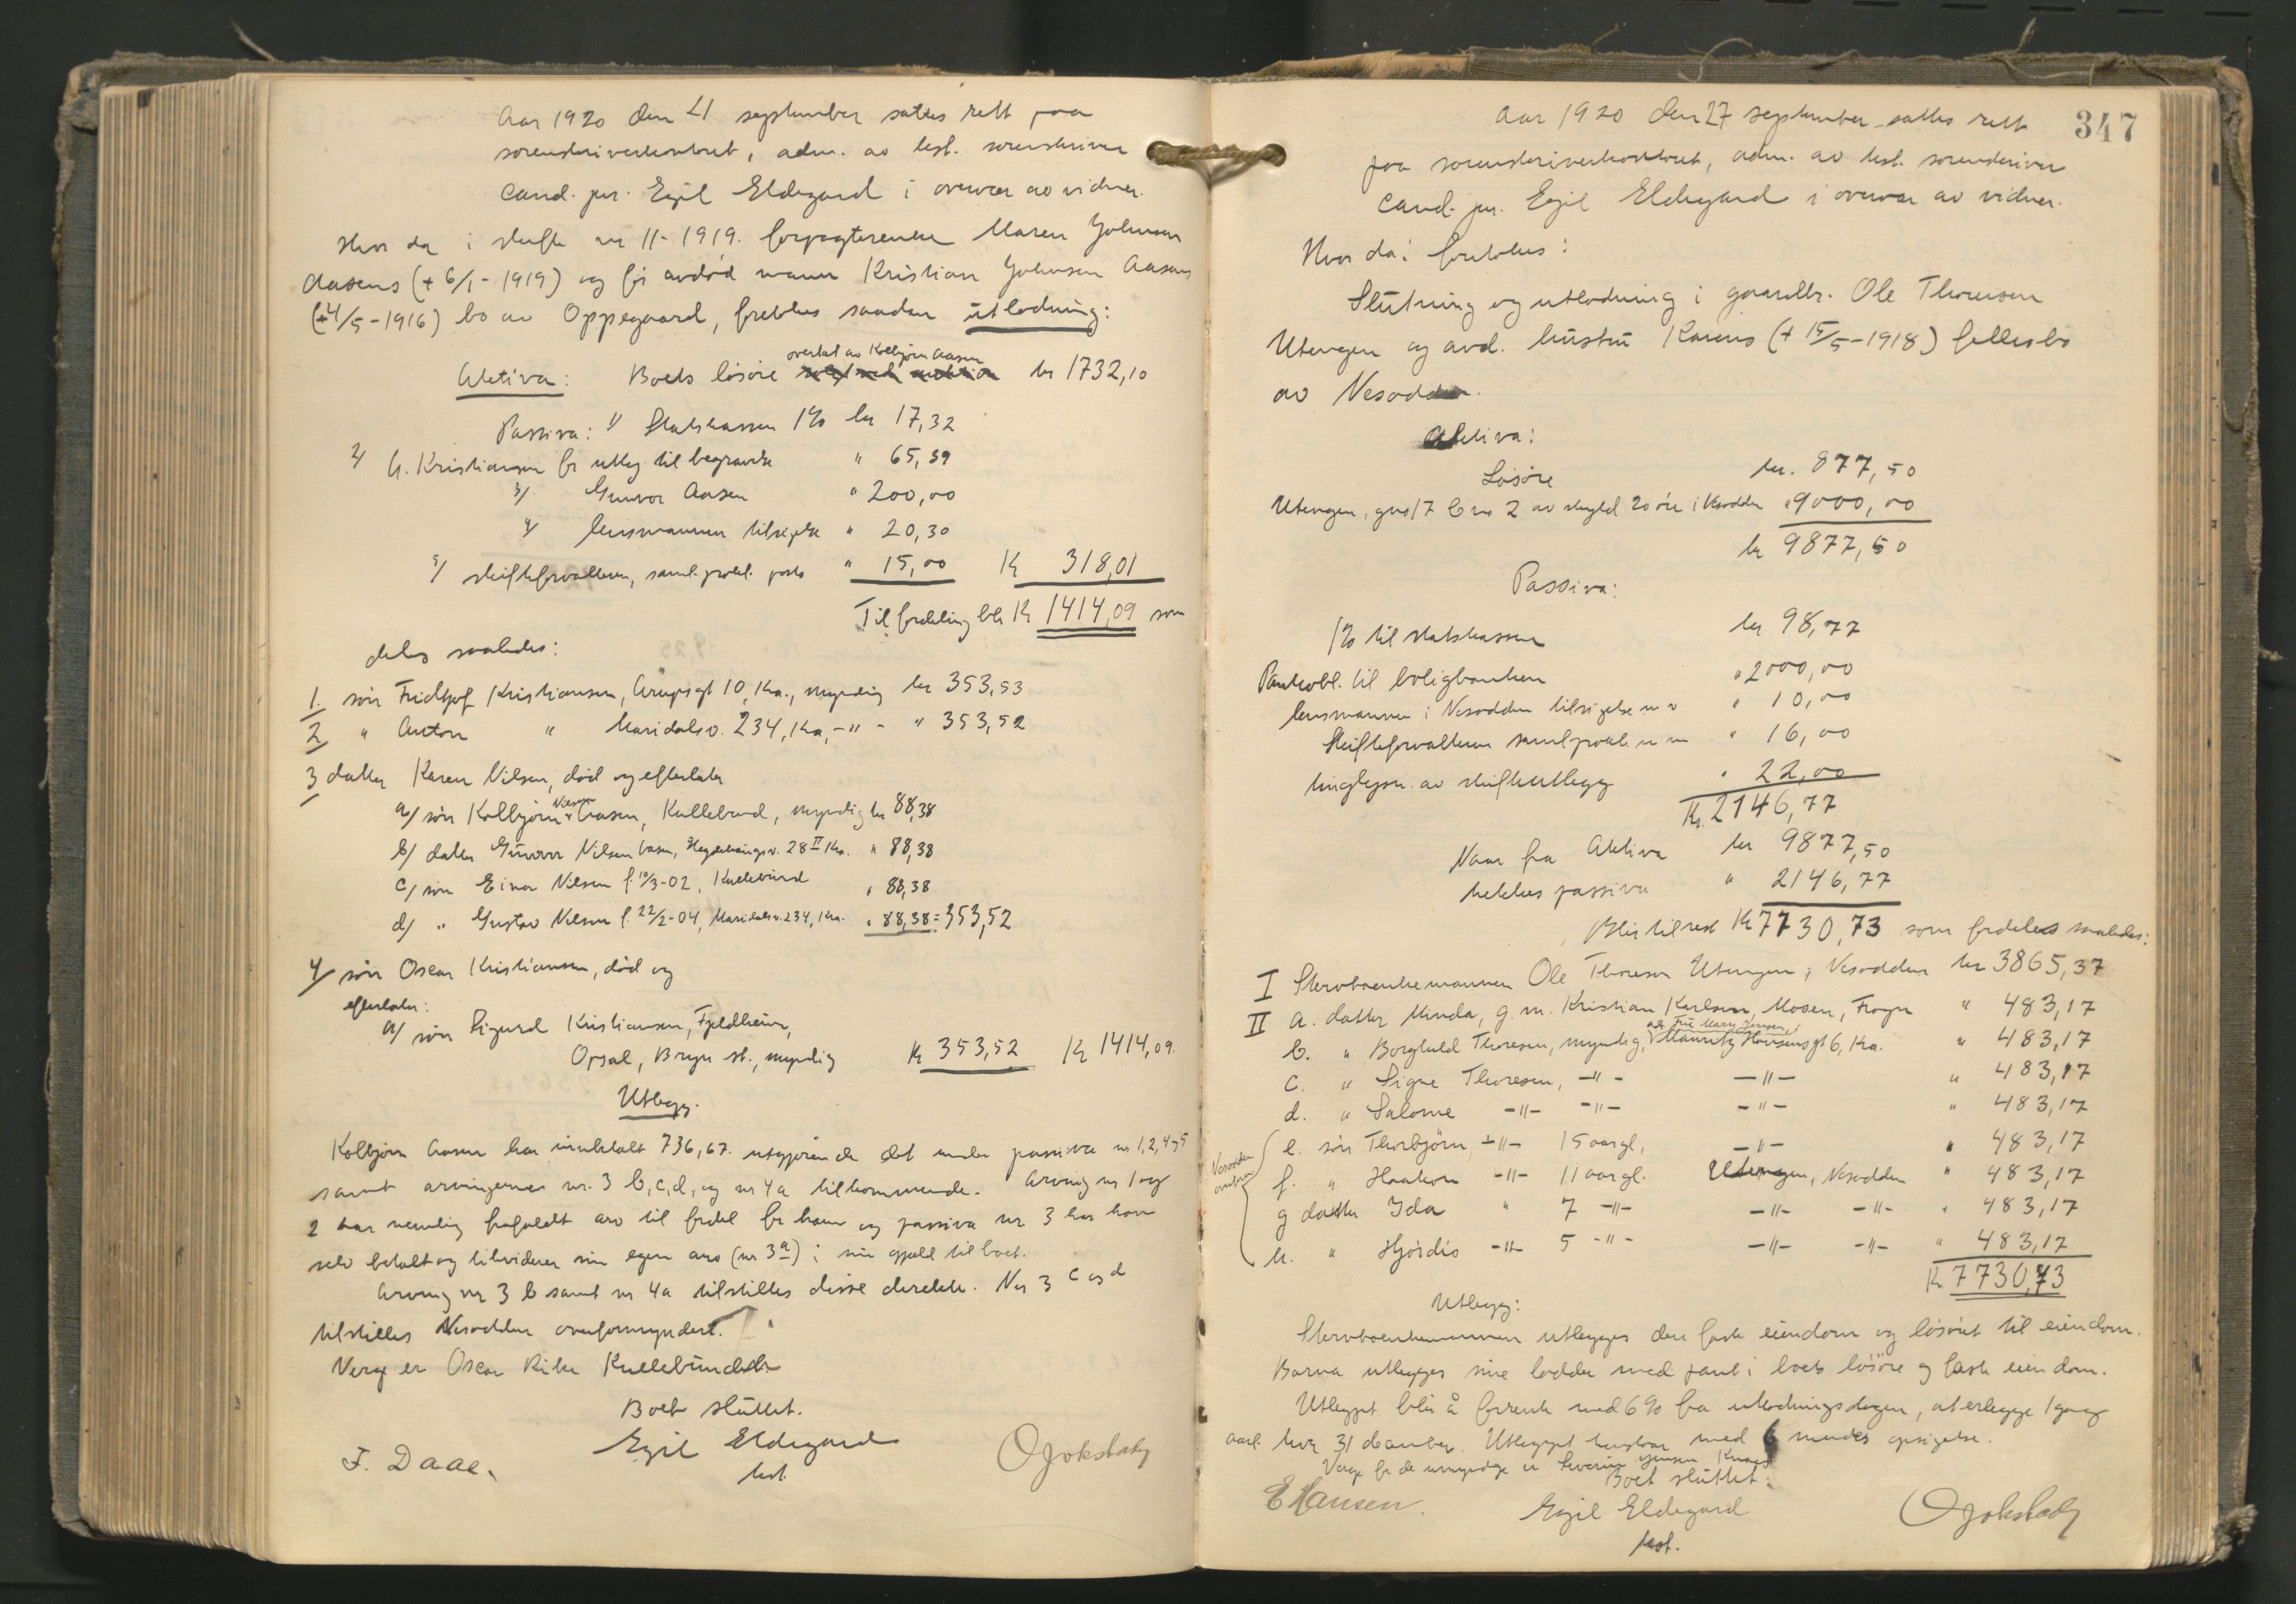 Aar 1920 den 21 september sattes rett paa
sorenskriverkontoret, adm. av best. sorenskriver
cand. jur. Egil Eldegard i overvær av vidner.
Hvor da i skifte nr 11-1919. forpagterenke Maren Johnsen
Aasens (+ 6/1-1919) og før avdød mann Kristian Johnsen Aasens
(+ 4/5-1916) bo av Oppegaard, foretokes saadan utlodning:
overtat av Kolbjørn Aasen
Aktiva: Boets løsøre kr 1732,10
Passiva: 1/ Statskassen 1% kr 17,32
2/ Kristiansen for utlegg til begravelse " 65,39
3/ Gunvor Aasen " 200,00
4/ lensmannen tilsigelse " 20,30
5/ skifteforvalteren, saml. protok. porto " 15,00 Kr 318,01
Til fordeling blir Kr 1414,09 som
deles saaledes:
1. søn Fridtjof Kristiansen, Arupsgt 10, Kra., myndig kr 353,53
2. " Anton " Maridalsv. 234, Kra, -"- " 353,52
3 datter Karen Nilsen, død og efterlater
a/ søn Kolbjørn Nilsen Aasen, Kullebund, myndig kr 88,38
b/ datter Gunvor Nilsen Aasen, Hegdehaugsv. 28 II Kra. " 88,38
c/ søn Einar Nilsen f. 10/3-02, Kullebund " 88,38
d/ " Gustav Nilsen f. 22/2-04, Maridalsv. 234, Kra. " 88,38 = 353,52
4/ søn Oscar Kristiansen, død og
efterlater:
a/ søn Sigurd Kristiansen, Fjeldheim,
Opsal, Bryn st., myndig Kr 353,52 Kr 1414,09.
Utlegg.
Kolbjørn Aasen har innbetalt 736,67. utgjørende det under passiva nr 1, 2, 4 og 5
samt arvingerne nr. 3 b, c, d, og nr 4a tilkommende. Arving nr 1 og
2 har nemlig frafaldt arv til fordel for ham og passiva nr 3 har han
selv betalt og likviderer sin egen arv (nr 3a) i sin gjæld til boet.
Arving nr 3 b samt nr 4a tilstilles disse direkte. Nr 3 c og d
tilstilles Nesodden overformynderi.
Verge er Oscar Kullebund
Boet sluttet.
Egil Eldegard
best.
F. Daae.
O Gjokstady
347
Aar 1920 den 27 september sattes rett
paa sorenskriverkontoret, adm. av best. sorenskriver
cand. jur. Egil Eldegard i overvær av vidner.
Hvor da: foretokes:
Slutning og utlodning i gaardbr. Ole Thoresen
Utengen og avd. hustru Karens (+ 15/5-1918) fellesbo
av Nesodden.
Aktiva:
Løsøre kr. 877,50
Utengen, gno 17 bno 2 av skyld 20 øre i Nesodden " 9000,00
kr 9877,50
Passiva:
1% til statskassen kr 98,77
Pantobl. til boligbanken " 2000,00
lensmannen i Nesodden tilsigelse m v " 10,00
Skifteforvalteren saml. protok. m m " 16,00
tinglysn. av skifteutlegg " 22,00
Kr. 2146,77
Naar fra Aktiva kr 9877,50
trekkes passiva " 2146,77
Blir til rest Kr 7730,73 som fordeles saaledes:
I Stervboenkemannen Ole Thoresen Utengen, Nesodden kr 3865,37
II a. datter Minda, g. m. Kristian Karlsen, Mosen, Frogn " 483,17
adr. Fru Mary Jensen,
b. " Borghild Thoresen, myndig, Mauritz Hansensgt 6, Kra. " 483,17
c. " Signe Thoresen, -"- -"- " 483,17
d. " Salome -"- -"- -"- " 483,17
e. søn Thorbjørn -"- 15 aar gl, -"- " 483,17
Nesodden
f. " Haakon -"- 11 aar gl. Utengen, Nesodden " 483,17
g datter Ida " 7 -"- -"- -"- " 483,17
h. " Hjørdis -"- 5 -"- -"- -"- " 483,17
Kr 7730,73
Utlegg:
Stervboenkemannen utlegges den faste eiendom og løsøret til eiendom.
Barna utlegges sine lodder med pant i boets løsøre og faste eiendom.
Utlegget blir å forrente med 6% fra utlodningsdagen, at erlegge 1 gang
aarl. hver 31 desember. Utlegget med 6 mndes opsigelse.
Verge for de umyndige er Severin Jensen
Boet sluttet.
E Hansen.
Egil Eldegard
best.
O Gjokstady